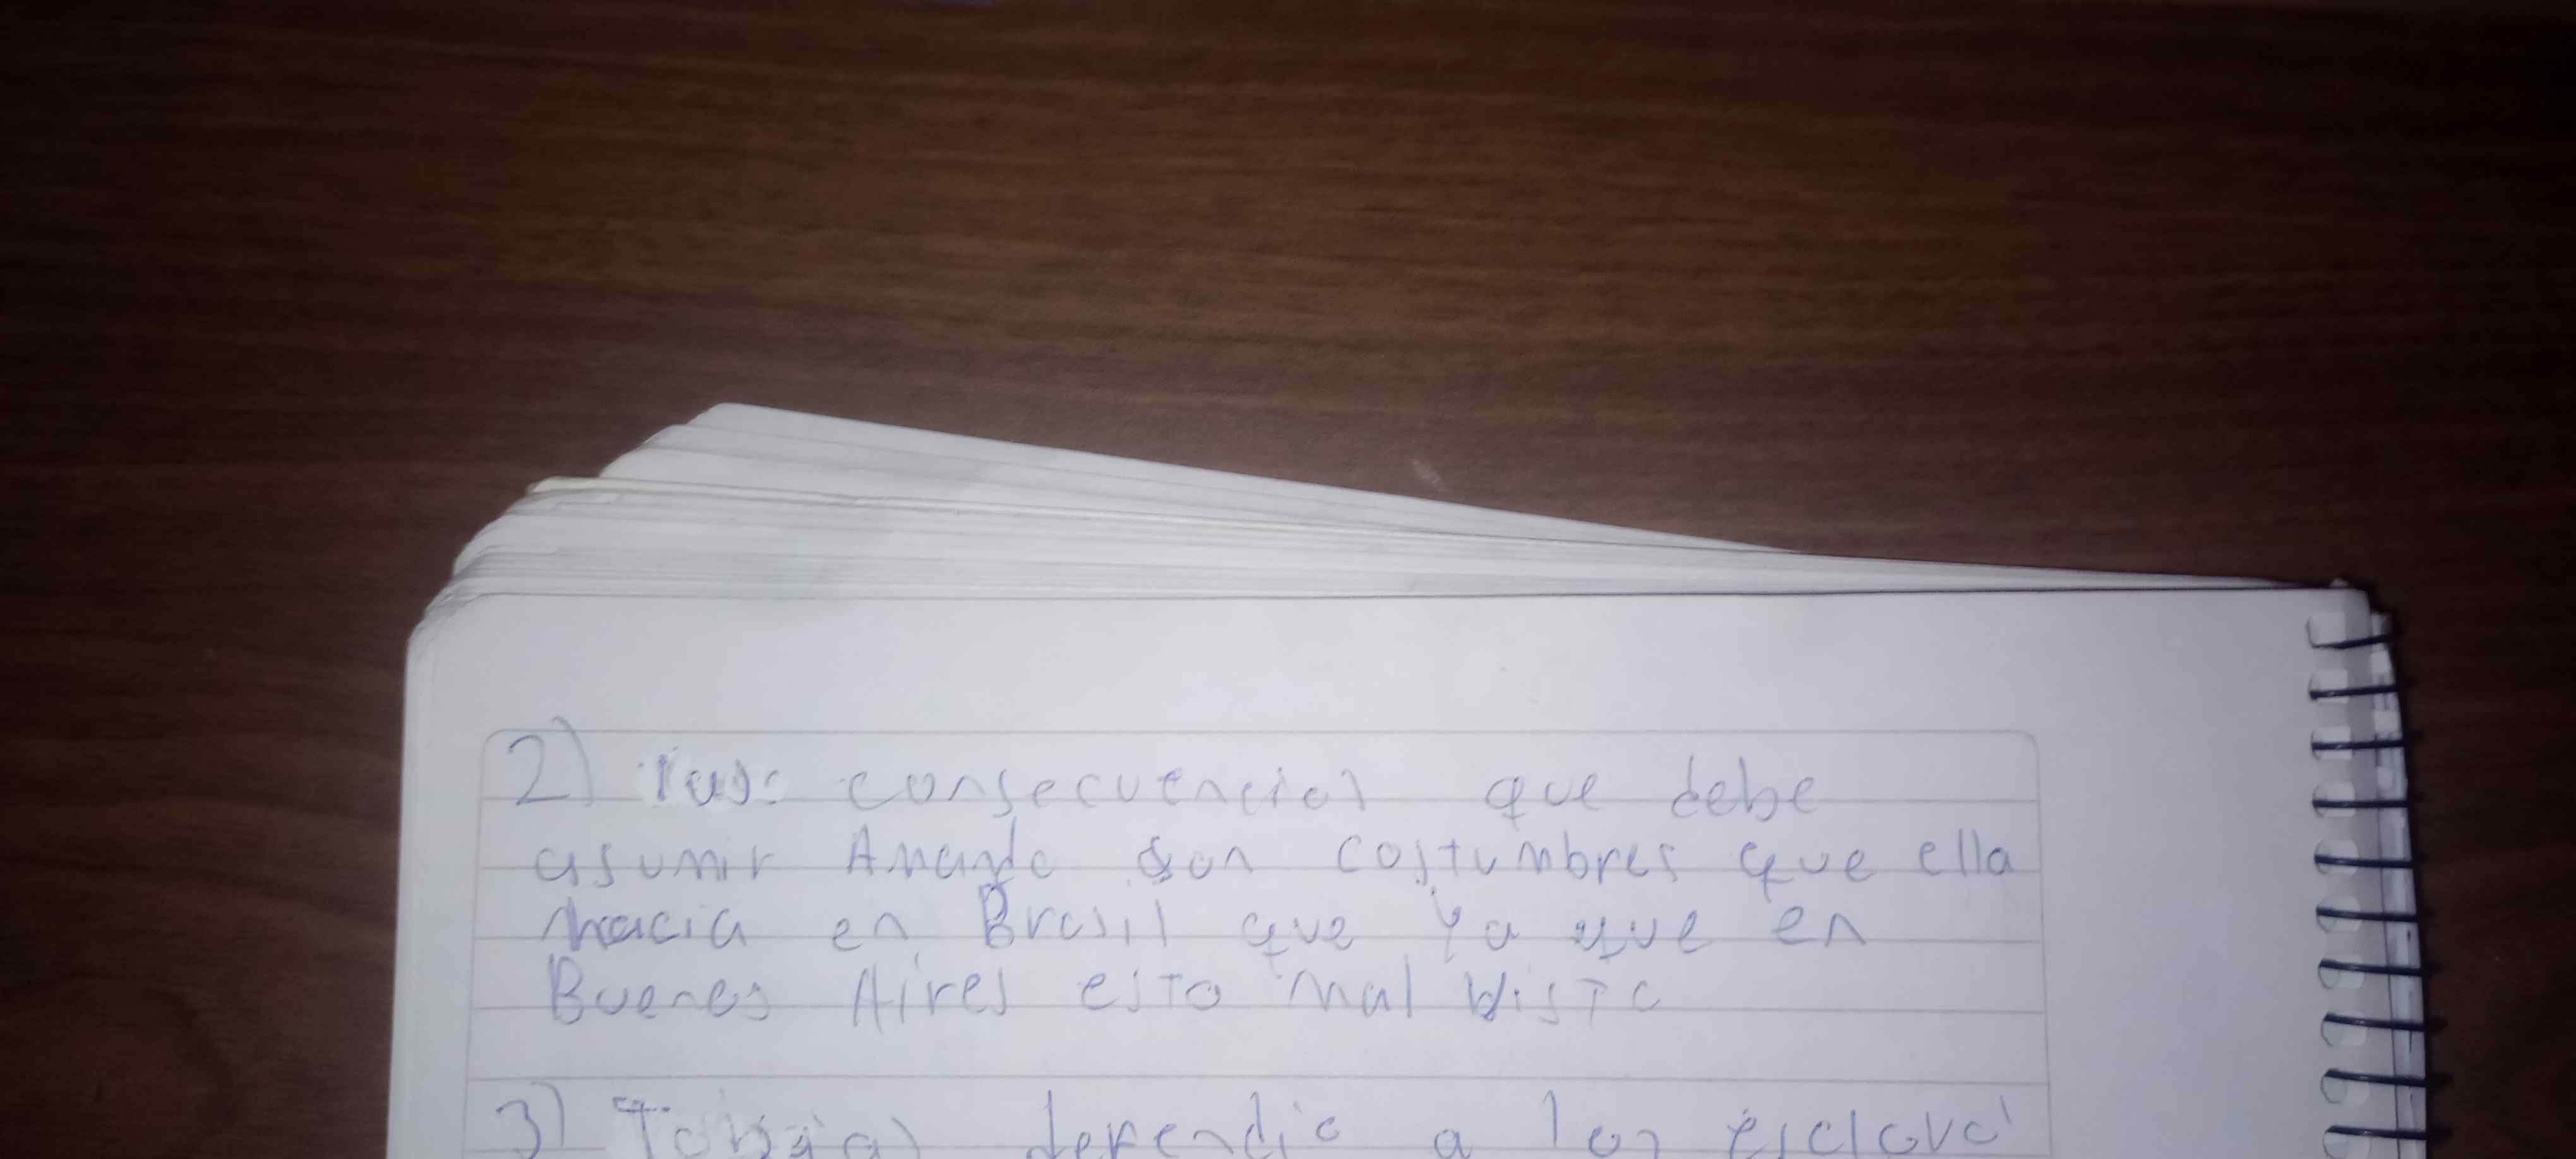 2) las consecuencias que debe
asumir Amanda son costumbres que ella
hacia en Brasil que ya que en
Buenos Aires esto mal visto
3) Tobias defendio a los esclavo